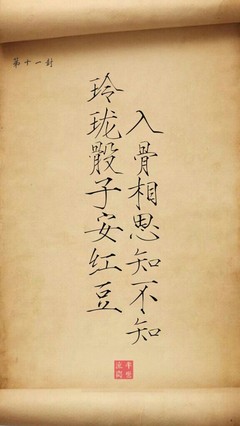 第十一封
玲珑骰子安红豆
入骨相思知不知